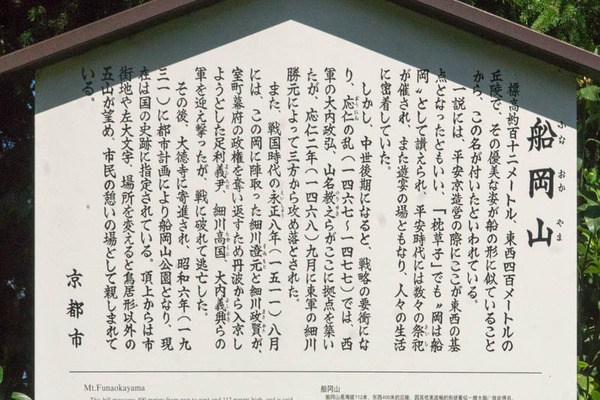 船岡山
ふな おか やま
標高約百十二メートル、東西四百メートルの
丘陵で、その優美な姿が船の形に似ていること
から、この名が付いたといわれている。
一説には、平安京造営の際にここが東西の基
点となったともいい、「枕草子」でも〝岡は船
岡〟として讃えられ、平安時代には数々の祭祀
が催され、また遊宴の場ともなり、人々の生活
に密着していた。
しかし、中世後期になると、戦略の要衝にな
り、応仁の乱(一四六七〜一四七七)では、西
軍の大内政弘、山名教之らがここに拠点を築い
たが、応仁二年(一四六八)九月に東軍の細川
勝元によって三方から攻め落とされた。
また、戦国時代の永正八年(一五一一)八月
には、この岡に陣取った細川澄元と細川政賢が、
室町幕府の政権を奪い返すため丹波から入京し
ようとした足利義尹、細川高国、大内義興らの
軍を迎え撃ったが、戦に破れて逃亡した。
その後、大徳寺に寄進され、昭和六年(一九
三一)に都市計画により船岡山公園となり、現
在は国の史跡に指定されている。頂上からは市
街地や左大文字、場所を変えると鳥居形以外の
五山が望め、市民の憩いの場として親しまれて
いる。
京都市
Mt.Funaokayama
This hill measures 400 meters from east to west and 112 meters high, and is said
船岡山
船岡山是海拔112米、东西400米的丘陵，